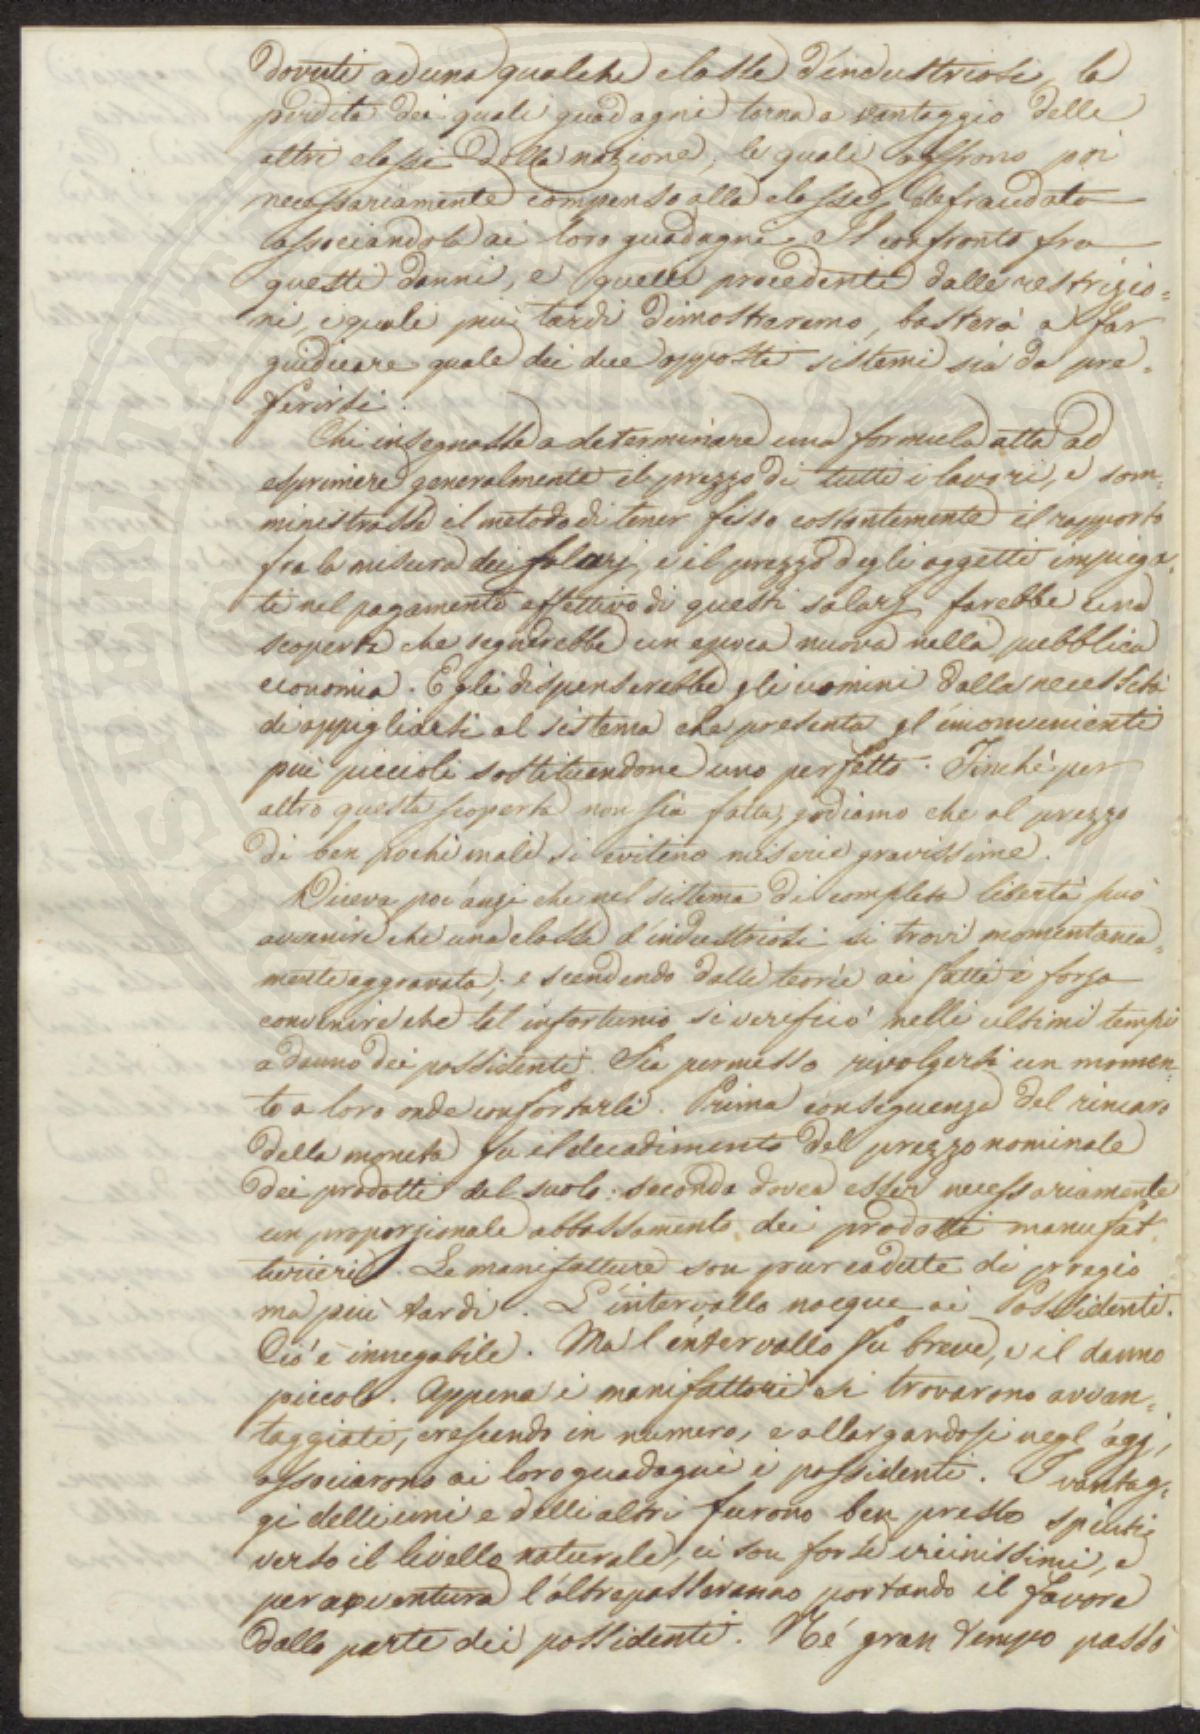 dovuti ad una qualche classe d'industriosi, la
perdita dei quali guadagni torna a vantaggio delle
altre classi della nazione, le quali offrono poi
necessariamente compenso alla classe defraudata
associandola ai loro guadagni. Il confronto fra
questi danni, e quelli procedenti dalle restrizio=
ni, i quali più tardi dimostraremo, basterà a far
guidicare quale dei due opposti sistemi sia da pre=
ferirsi.
Chi insegnasse a determinare una formula atta ad
esprimere generalmente il prezzo di tutti i lavori, e som=
ministrasse il metodo di tener fisso costantemente il rapporto
fra la misura dei salarj, e il prezzo degli oggetti impiega=
ti nel pagamento effettivo di questi salarj farebbe una
scoperta che segnerebbe un epoca nuova nella pubblica
economia. Egli dispenserebbe gli uomini dalla necessità
di appigliarsi al sistema che presenta gl'inconvenienti
più piccioli sostituendone uno perfetto. Finchè per
altro questa scoperta non sia fatta, godiamo che al prezzo
di ben pochi mali si evitino miserie gravissime.
Diceva poc'anzi che nel sistema di completa libertà può
avvenire che una classe d'industriosi si trovi momentanea=
mente aggravata; e scendendo dalle teorie ai fatti è forza
convenire che tal infortunio si verificò nelli ultimi tempi
a danno dei possidenti. Sia permesso rivolgersi un momen=
to a loro onde confortarli. Prima conseguenza del rincaro
della moneta fu il decadimento del prezzo nominale
dei prodotti del suolo: seconda dovea esser necessariamente
un proporzionale abbassamento dei prodotti manufat=
turieri. Le manifatture son pur cadute di pregio
ma più tardi. L'intervallo nocque ai Possidenti.
Ciò è innegabile. Ma l'intervallo fu breve, e il danno
piccolo. Appena i manifattori si trovarono avvan=
taggiati, crescendo in numero, e allargandosi negl'agj,
associarono ai loro guadagni i possidenti. I vantag=
gi delli uni e delli altri furono ben presto spinti
verso il livello naturale, ci son forse vicinissimi, e
per avventura l'oltrepasseranno portando il favore
dalla parte dei possidenti. Né gran tempo passò